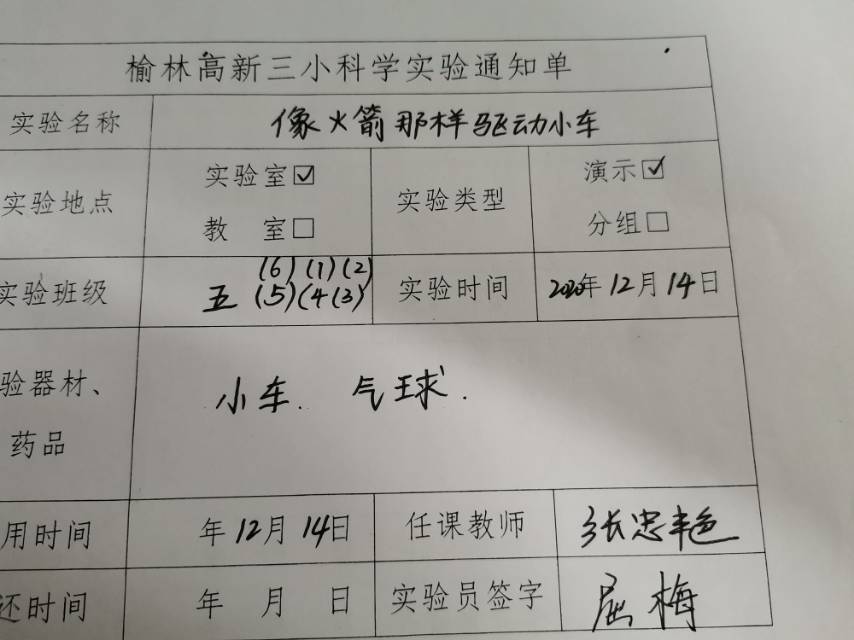 榆林高新三小科学实验通知单
实验名称 像火箭那样驱动小车
实验地点 实验室☑ 教 室☐ 实验类型 演示☑ 分组☐
实验班级 五 (6)(1)(2) (5)(4(3) 实验时间 2020年12月14日
验器材、药品 小车. 气球.
用时间 年12月14日 任课教师 张忠艳
还时间 年 月 日 实验员签字 屈梅